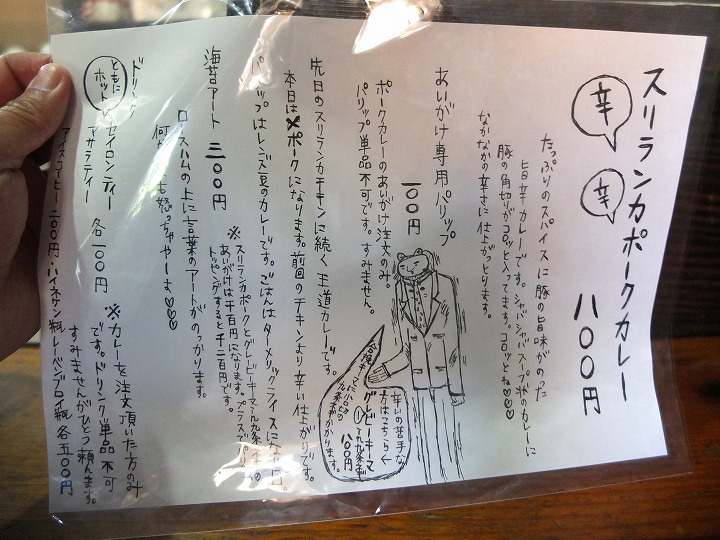 スリランカポークカレー 八〇〇円
辛
辛
たっぷりのスパイスに豚の旨味がのった
旨辛カレーです。シャバシャバスープ状のカレーに
豚の角切りがコロッと入ってます。コロッとね♡♡♡
なかなかの辛さに仕上がっとります。
あいがけ専用パリップ
一〇〇円
ポークカレーのあいがけ注文のみ。
パリップ単品不可です。すみません。
先日のスリランカチキンに続く王道カレーです。
本日はポークになります。前回のチキンより辛い仕上がりです。
パリップはレンズ豆のカレーです。ごはんはターメリックライスになります。
※スリランカポークとグレービーキーマと九条ネギの
あいがけは千百円になります。プラスでパリップを
トッピングすると千二百円です。
海苔アート 三〇〇円
ロースハムの上に言葉のアートがのっかります。
怒っちゃやーよ♡♡♡
ドリンク
ともにホット
セイロンティー
アサラティー
各一〇〇円
アイスコーヒー二〇〇円・ハイネケン瓶、レーベンブロイ瓶 各五〇〇円
※カレーを注文頂いた方のみ
です。ドリンク単品不可
すみませんがひとつ頼んます。
辛いの苦手な
方はこちら←
グレービーキーマ
八〇〇円